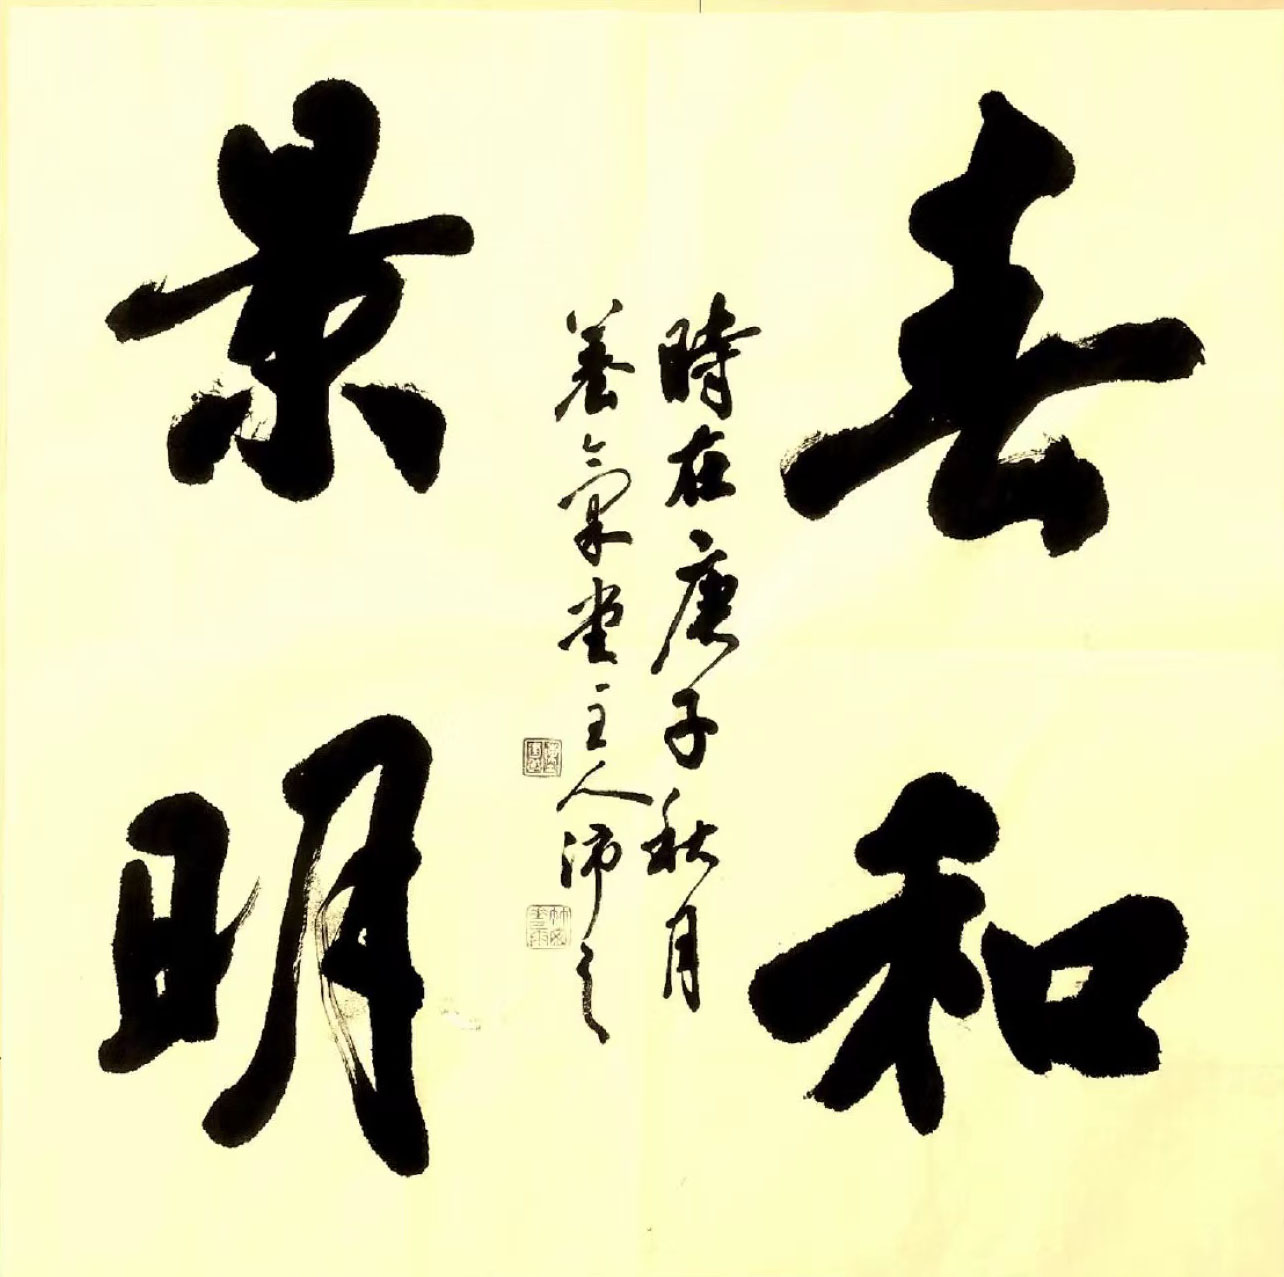 春和
景明
時在庚子秋月
養氣堂主人沛之